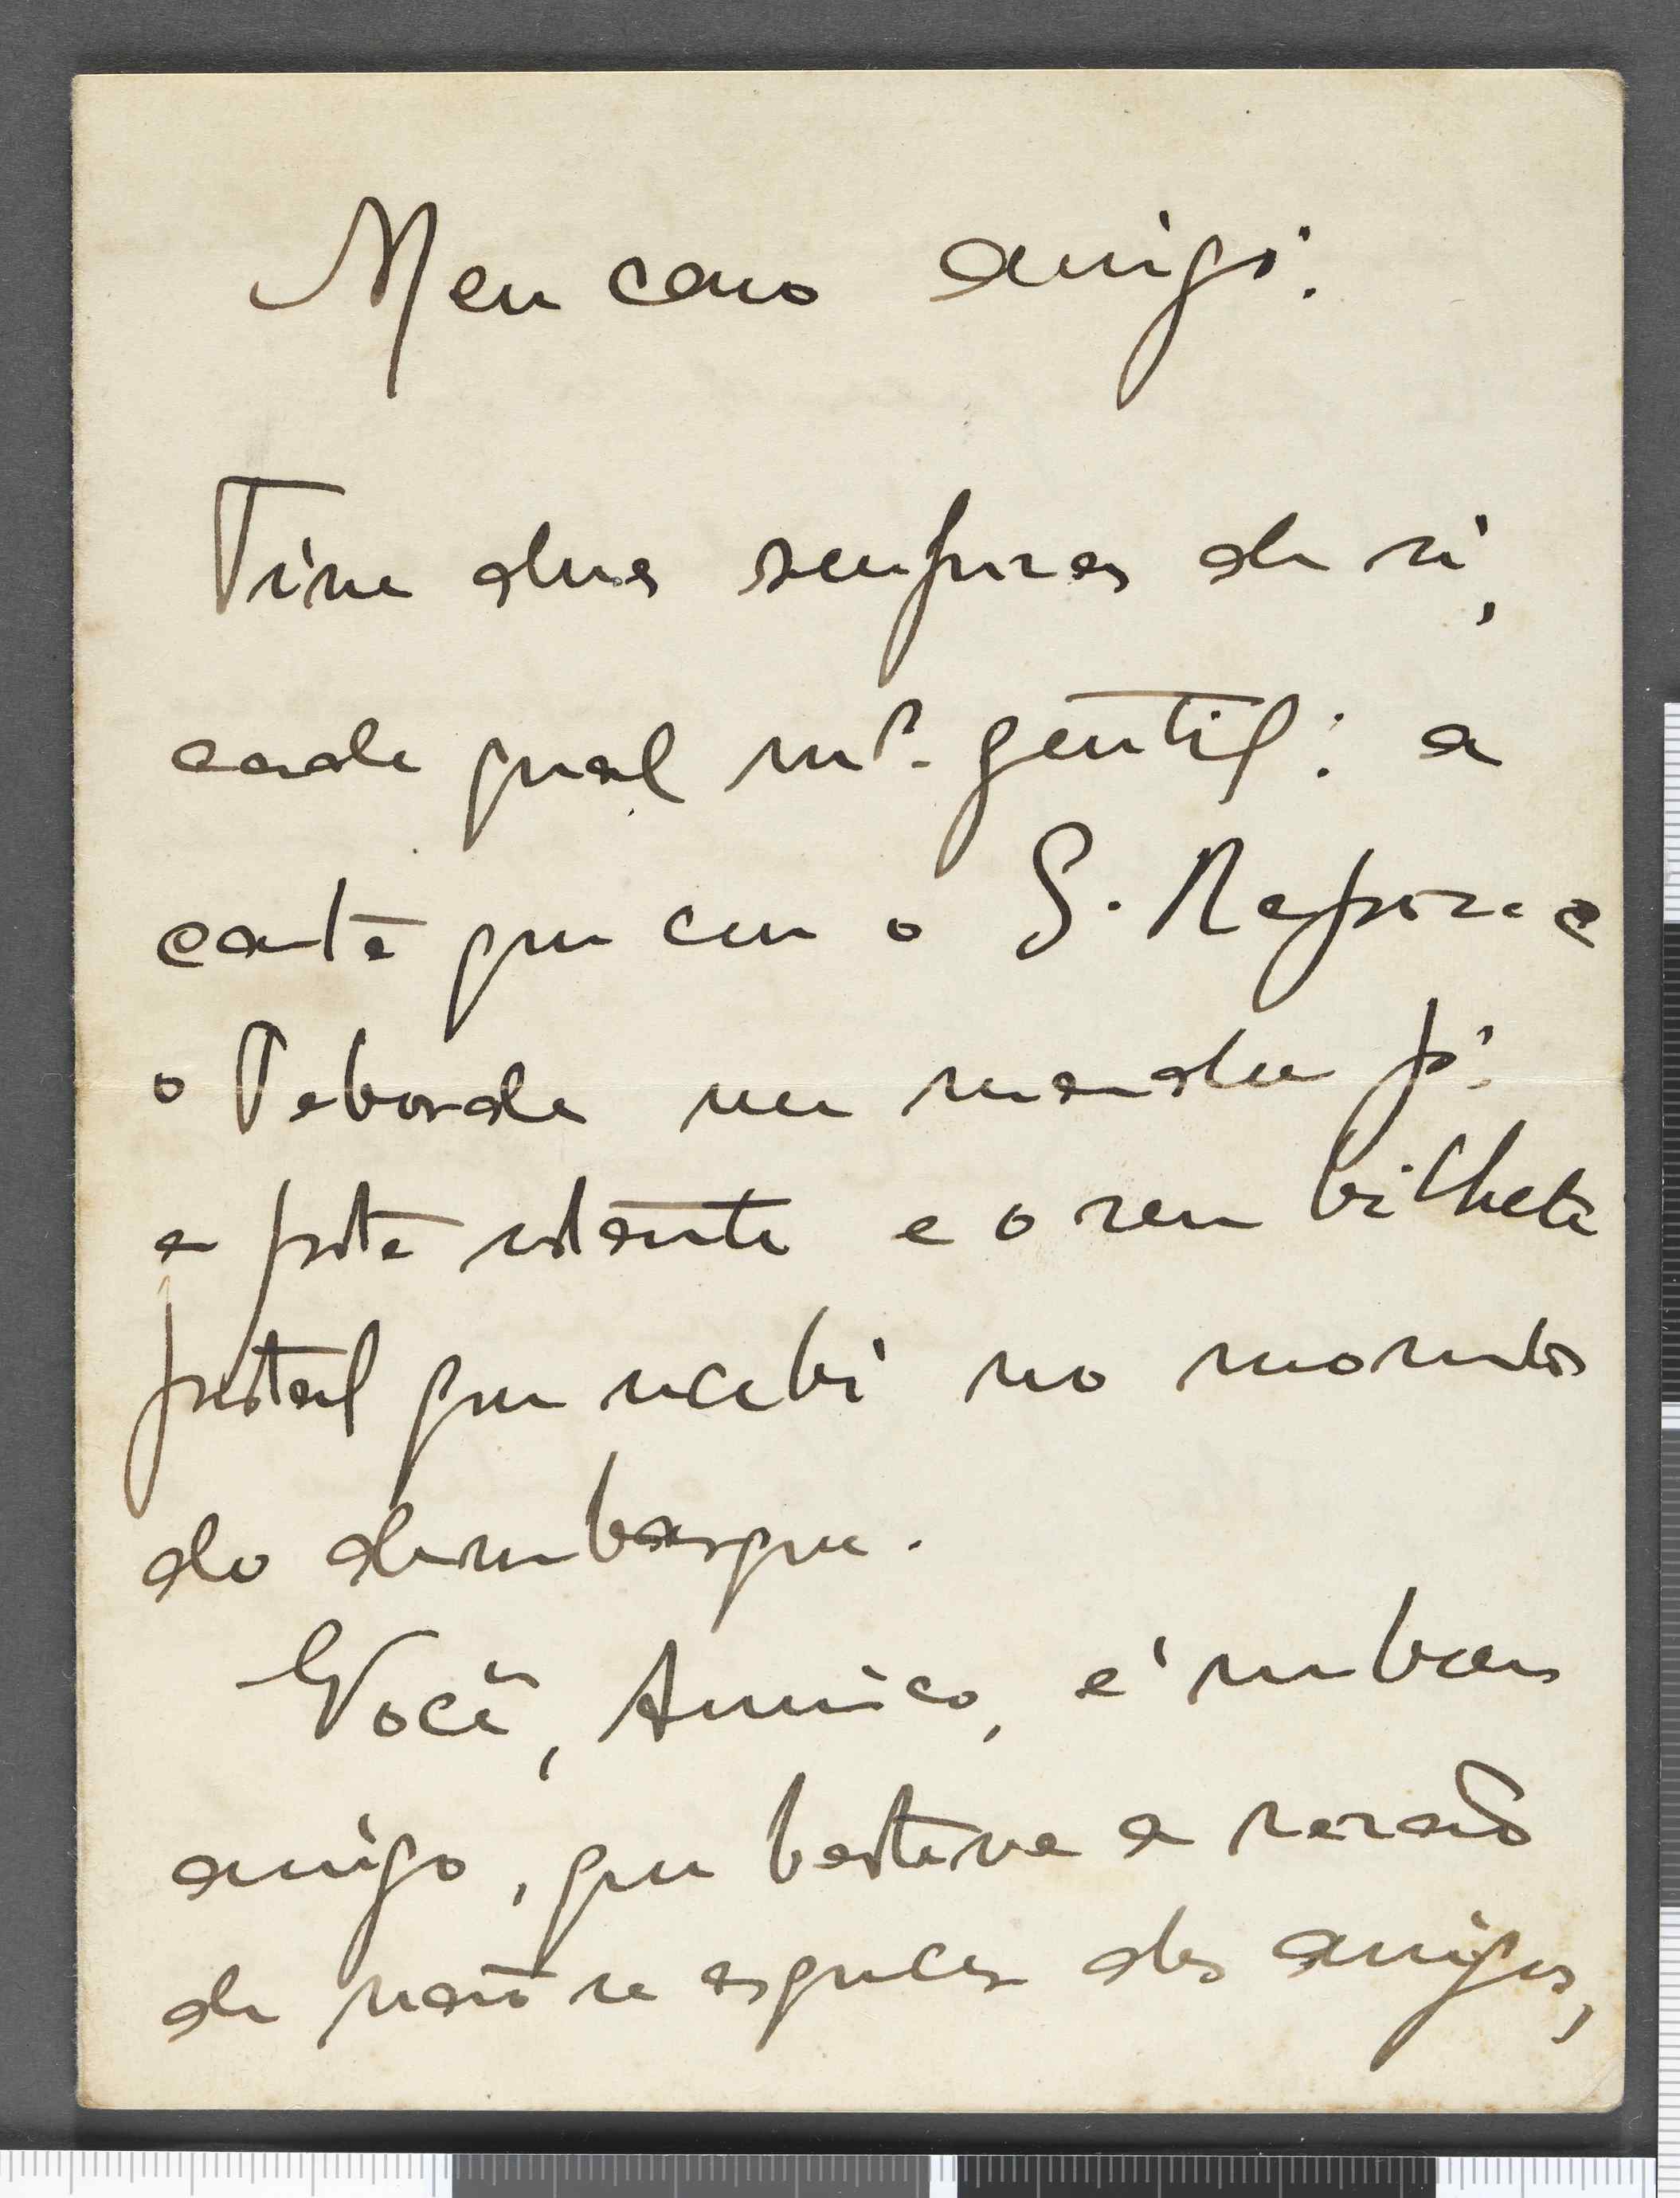 Meu caro amigo:
Tive duas surpresas de si,
cada qual mto. gentil: a
carta que com o S. Rafael e
o Taborda me mandou p.
a posta restante e o seu bilhete
postal que recebi no momento
do desembarque.
Você, Americo, é um bom
amigo, que bastava a razão
de não se esquecer dos amigos,